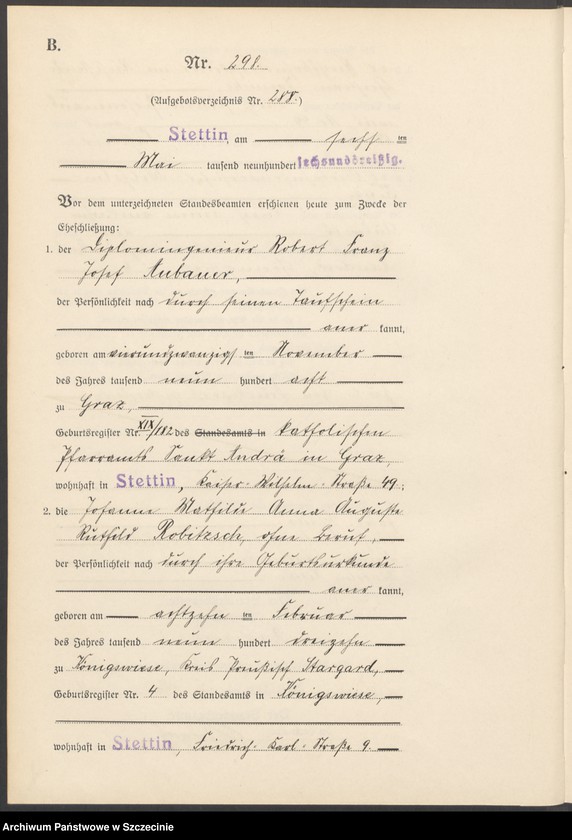 B.
Nr. 298.
(Aufgebotsverzeichnis Nr. 288.)
Stettin, am sechs ten
Mai tausend neunhundert sechsunddreißig.
Vor dem unterzeichneten Standesbeamten erschienen heute zum Zwecke der
Eheschließung:
1. der Diplomingenieur Robert Franz
Josef Aubauer,
der Persönlichkeit nach durch seinen Taufschein
aner kannt,
geboren am vierundzwanzigs ten November
des Jahres tausend neun hundert acht
zu Graz,
Geburtsregister Nr. XIX/182 des Standesamts in katholischen
Pfarramts Sankt Andrä in Graz,
wohnhaft in Stettin, Kaiser-Wilhelm-Straße 49.;
2. die Johanne Mathilde Anna Auguste
Ruthild Robitzsch, ohne Beruf,
der Persönlichkeit nach durch ihre Geburtsurkunde
aner kannt,
geboren am achtzehn ten Februar
des Jahres tausend neun hundert dreizehn
zu Königswiese, Kreis Preußisch Stargard,
Geburtsregister Nr. 4 des Standesamts in Königswiese,
wohnhaft in Stettin, Friedrich-Karl-Straße 9.
Archiwum Państwowe w Szczecinie